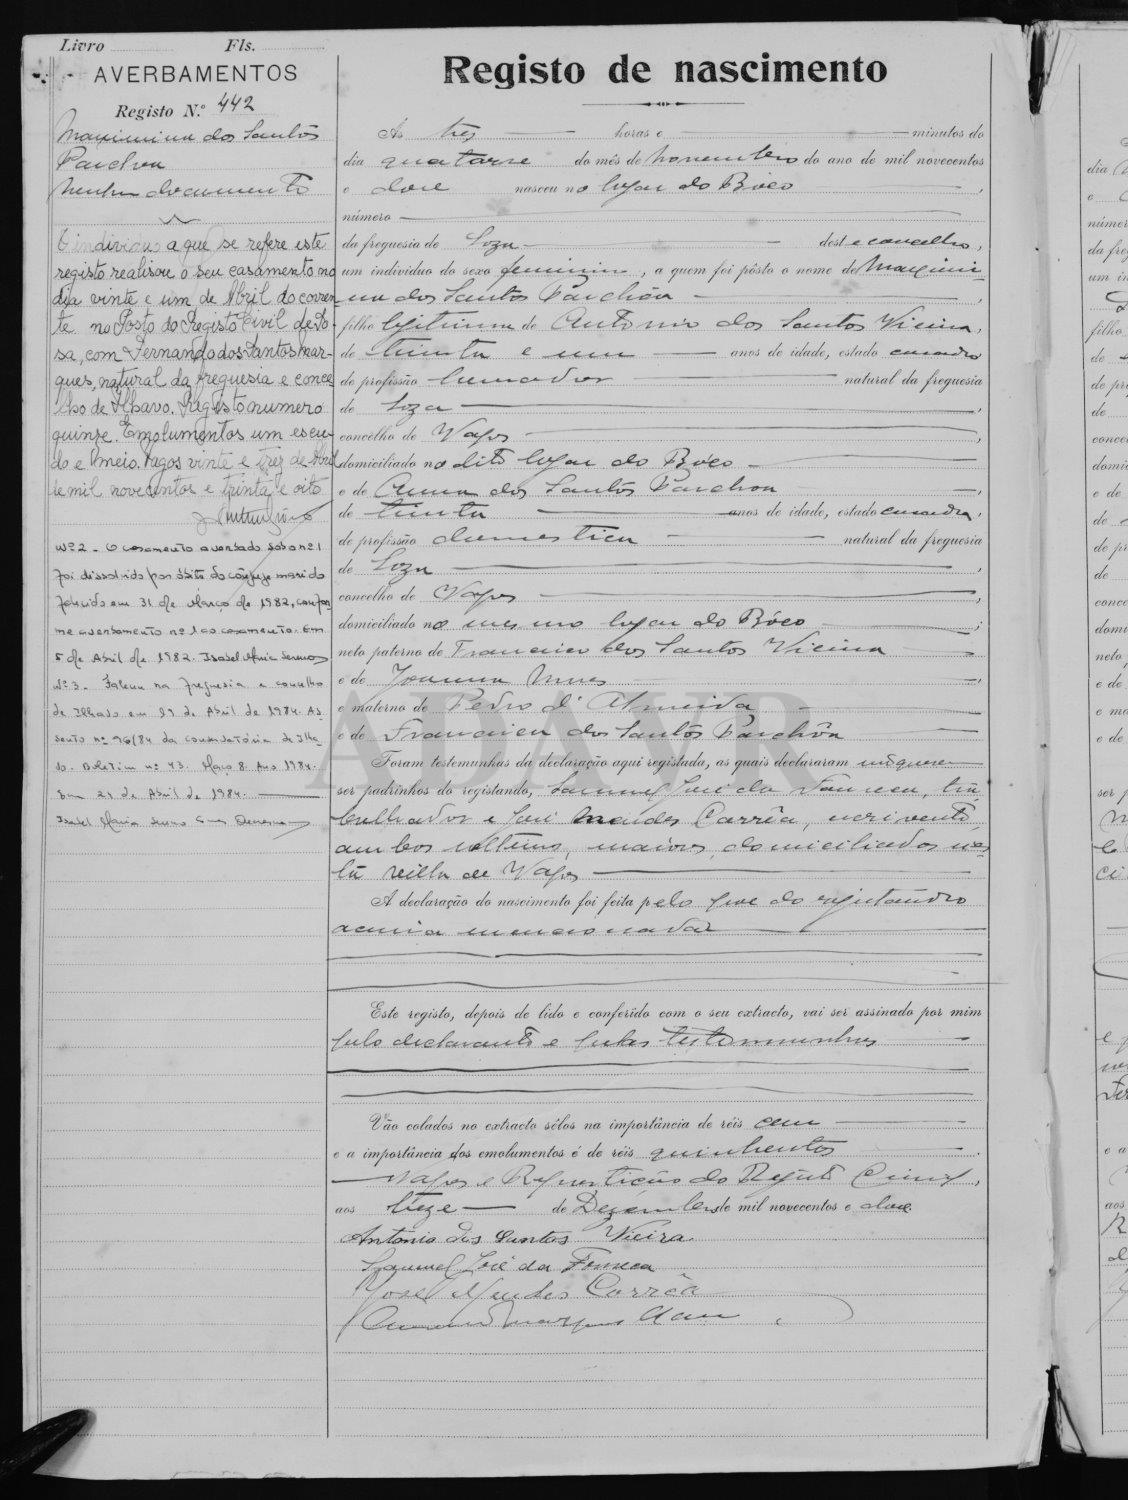 Livro Fls.
AVERBAMENTOS
Registo N.º 442
Maximina dos Santos
Parchôa
Nenhum documento
O individuo a que se refere este
registo realisou o seu casamento no
dia vinte e um de Abril do corren
te no Posto do Registo Civil de So-
sa, com Fernando dos Santos Mar-
ques, natural da freguesia e conce
lho de Ilhavo. Registo numero
quinze. Emolumentos um escu-
do e meio. Vagos vinte e trez de Abril
de mil novecentos e trinta e oito
Nº 2 - O casamento averbado sob o nº 1
foi dissolvido por óbito do cônjuge marido
falecido em 31 de Março de 1982, confor
me averbamento nº 1 ao casamento. Em
5 de Abril de 1982. Isabel Maria
Nº 3 - Faleceu na freguesia e concelho
de Ilhavo em 19 de Abril de 1984. As
sento nº 96/84 da conservatória de Ilha
vo. Boletim nº 43. Maço 8. Ano 1984.
Em 24 de Abril de 1984.
Isabel Maria
Registo de nascimento
Às tres horas e minutos do
dia quatorze do mês de Novembro do ano de mil novecentos
e doze nasceu no logar do Bôco
número
da freguesia de Soza deste concelho,
um indivíduo do sexo feminino, a quem foi pôsto o nome de Maximi-
na dos Santos Parchôa
filho legitimo de Antonio dos Santos Vieira,
de trinta e um anos de idade, estado casado
de profissão lavrador natural da freguesia
de Soza
concelho de Vagos
domiciliado no dito logar do Bôco
e de Anna dos Santos Parchoa
de trinta anos de idade, estado casada,
de profissão domestica natural da freguesia
de Soza
concelho de Vagos
domiciliado no mesmo logar do Bôco
neto paterno de Francisco dos Santos Vieira
e de Joanna Nunes
e materno de Pedro d'Almeida
e de Francisca dos Santos Parchôa
Foram testemunhas da declaração aqui registada, as quais declararam não querer
ser padrinhos do registando, Samuel José da Fonseca, tra
balhador e José Mendes Corrêa, escrivente,
ambos solteiros, maiores, domiciliados nes
ta villa de Vagos
A declaração do nascimento foi feita pelo pae do registando
acima mencionado
Este registo, depois de lido e conferido com o seu extracto, vai ser assinado por mim
pelo declarante e pelas testemunhas
Vão colados no extracto sêlos na importância de réis cem
e a importância dos emolumentos é de réis quinhentos
Vagos e Repartição do Registo Civil,
aos treze de Dezembro de mil novecentos e doze
António dos Santos Vieira
Samuel José da Fonseca
José Mendes Corrêa
ADAVR